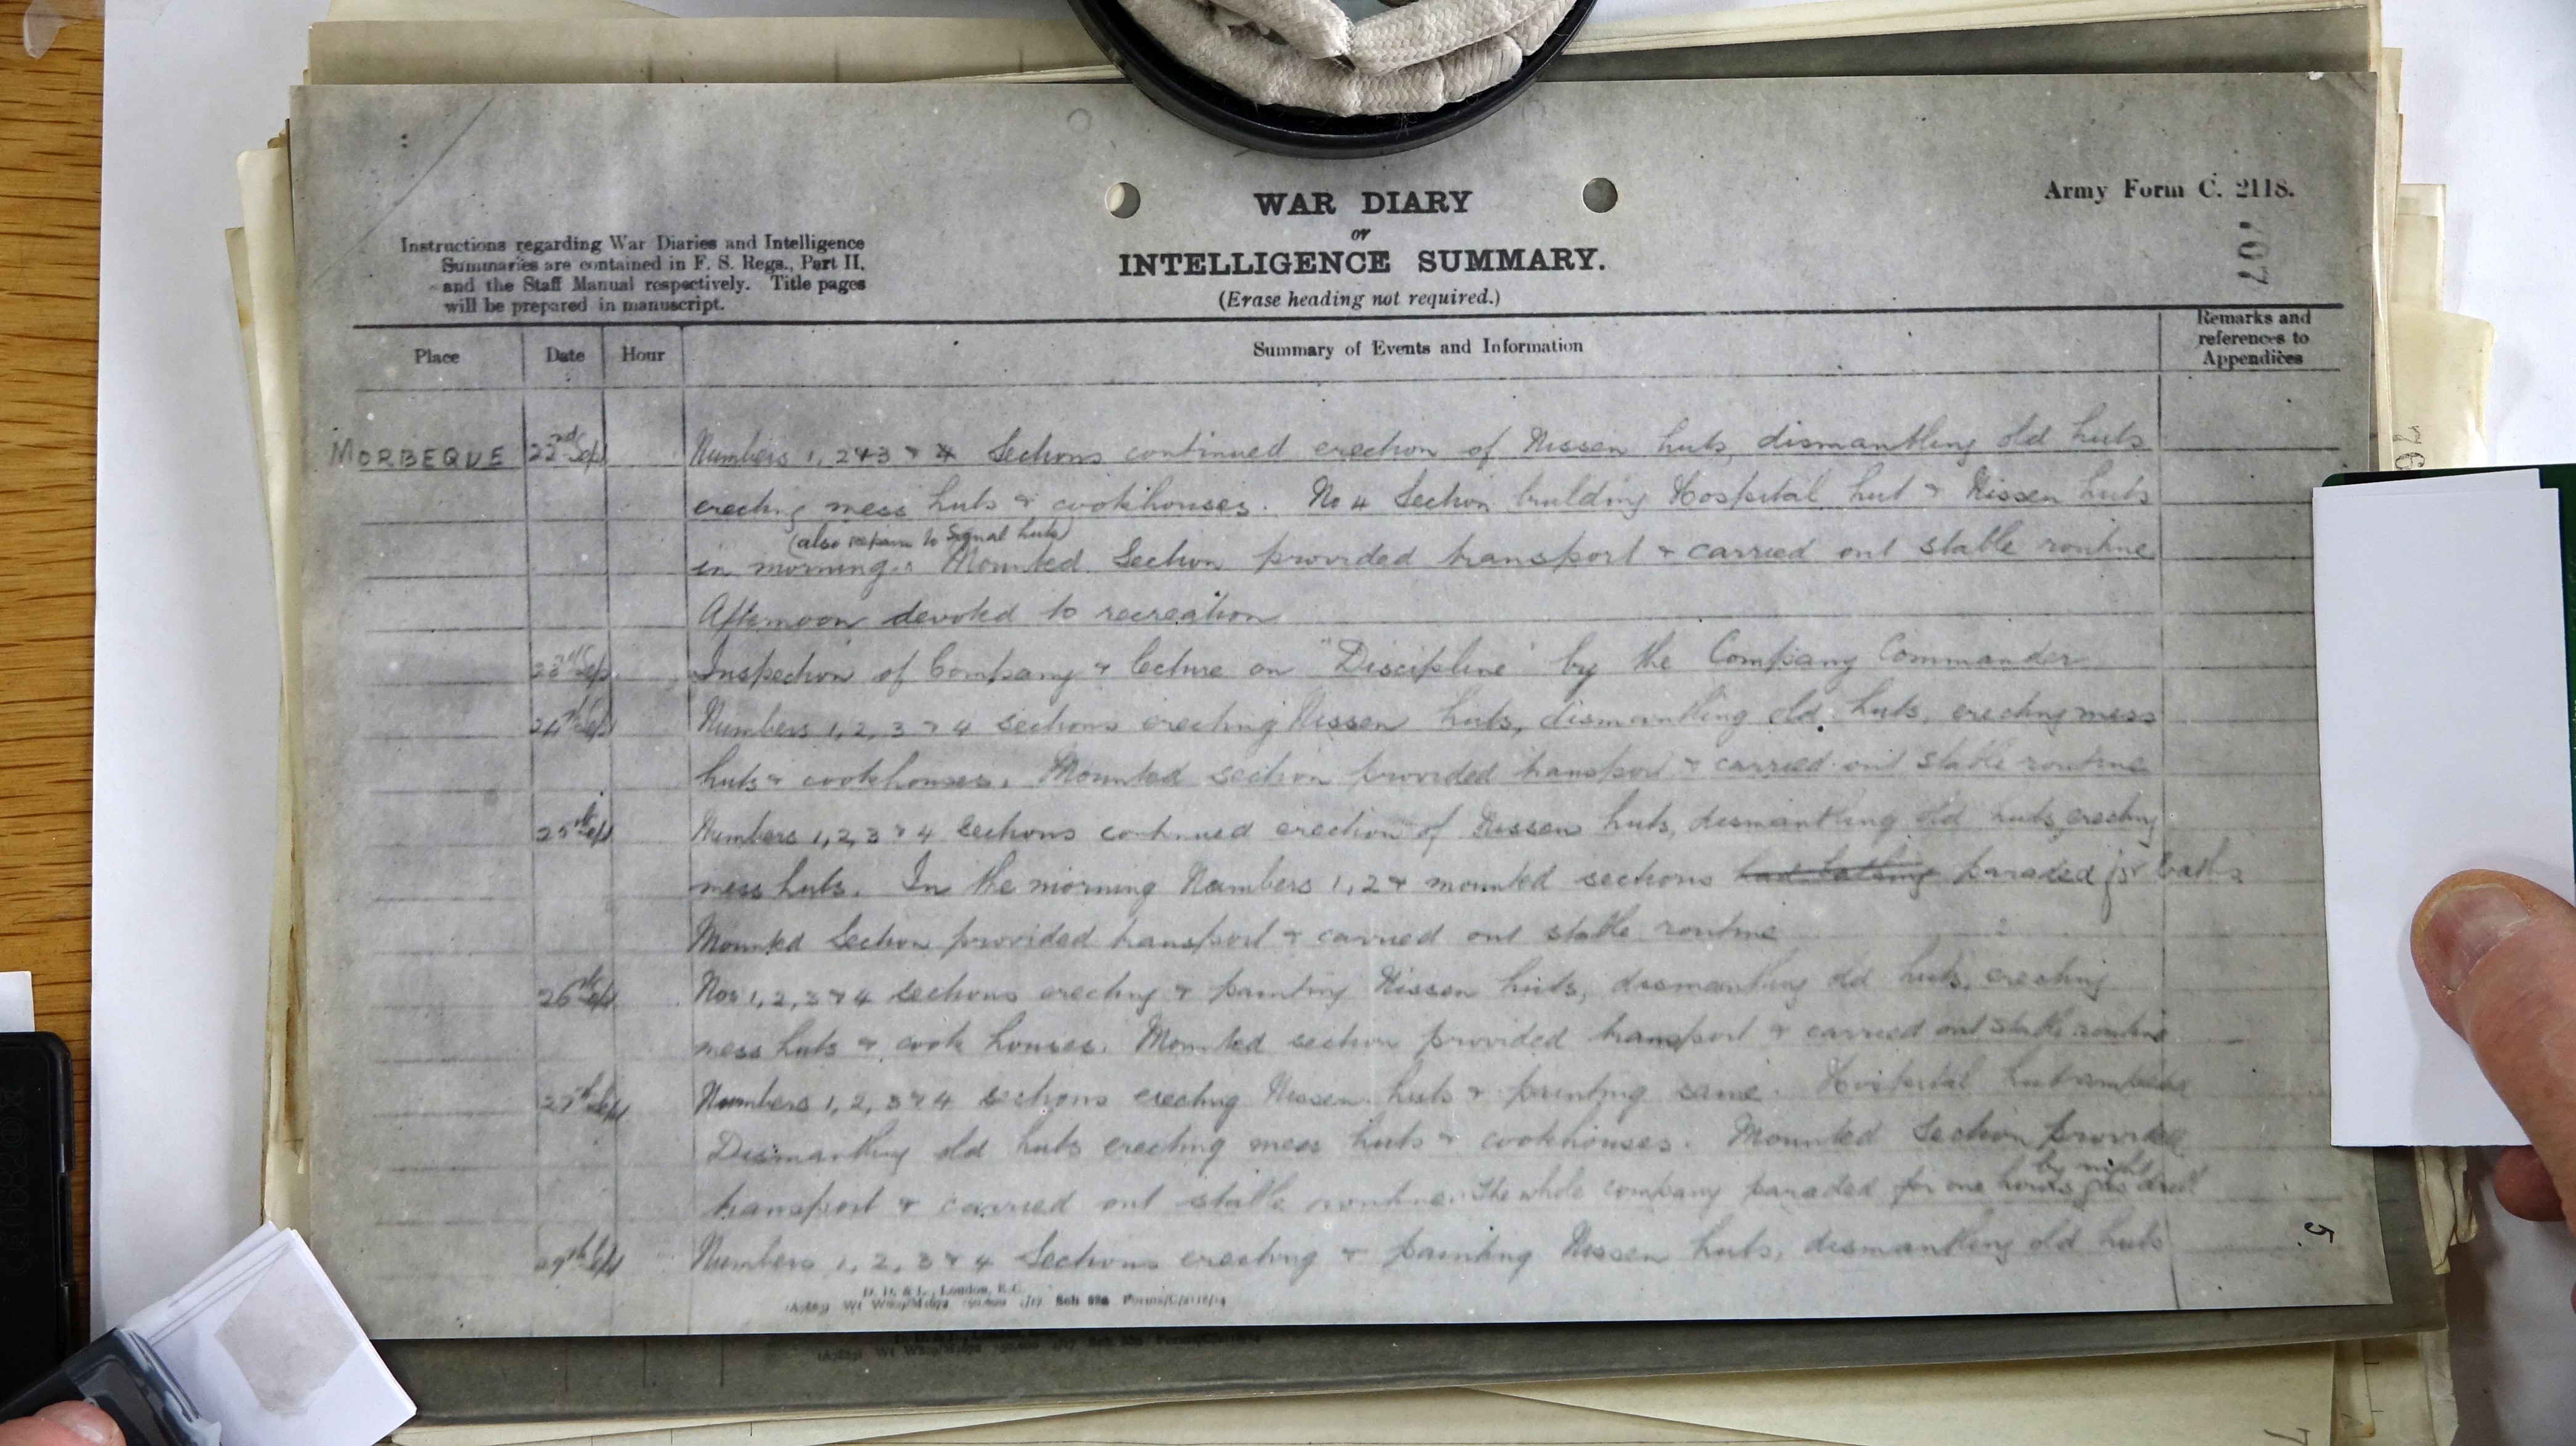 Army Form C. 2118.
707
WAR DIARY
or
INTELLIGENCE SUMMARY.
(Erase heading not required.)
Instructions regarding War Diaries and Intelligence
Summaries are contained in F. S. Regs., Part II.
and the Staff Manual respectively. Title pages
will be prepared in manuscript.
Place Date Hour Summary of Events and Information Remarks and references to Appendices
MORBEQUE 22nd Sept Numbers 1, 2 & 3 Sections continued erection of Nissen huts, dismantling old huts
erecting mess huts & cookhouses. No 4 Section building Hospital hut & Nissen huts
(also repairs to Signal huts)
in morning. Mounted Section provided transport & carried out stable routine
Afternoon devoted to recreation
23rd Sep. Inspection of Company & lecture on "Discipline" by the Company Commander
24th Sep Numbers 1, 2, 3 & 4 sections erecting Nissen huts, dismantling old huts, erecting mess
huts & cookhouses. Mounted section provided transport & carried out stable routine
25th Sept Numbers 1, 2, 3 & 4 sections continued erection of Nissen huts, dismantling old huts, erecting
mess huts. In the morning Numbers 1, 2 & mounted sections had bathing paraded for baths
Mounted Section provided transport & carried out stable routine
26th Sept Nos 1, 2, 3 & 4 sections erecting & painting Nissen huts, dismantling old huts, erecting
mess huts & cook houses. Mounted section provided transport & carried out stable routine
27th Sept Numbers 1, 2, 3 & 4 sections erecting Nissen huts & painting same. Hospital hut
Dismantling old huts erecting mess huts & cookhouses. Mounted Section provided
by night
transport & carried out stable routine. The whole company paraded for one hours gas drill
29th Sept Numbers 1, 2, 3 & 4 Sections erecting & painting Nissen huts, dismantling old huts
5.
D. D. & L., London, E.C.
Sch 52a Forms/C/2118/14
76